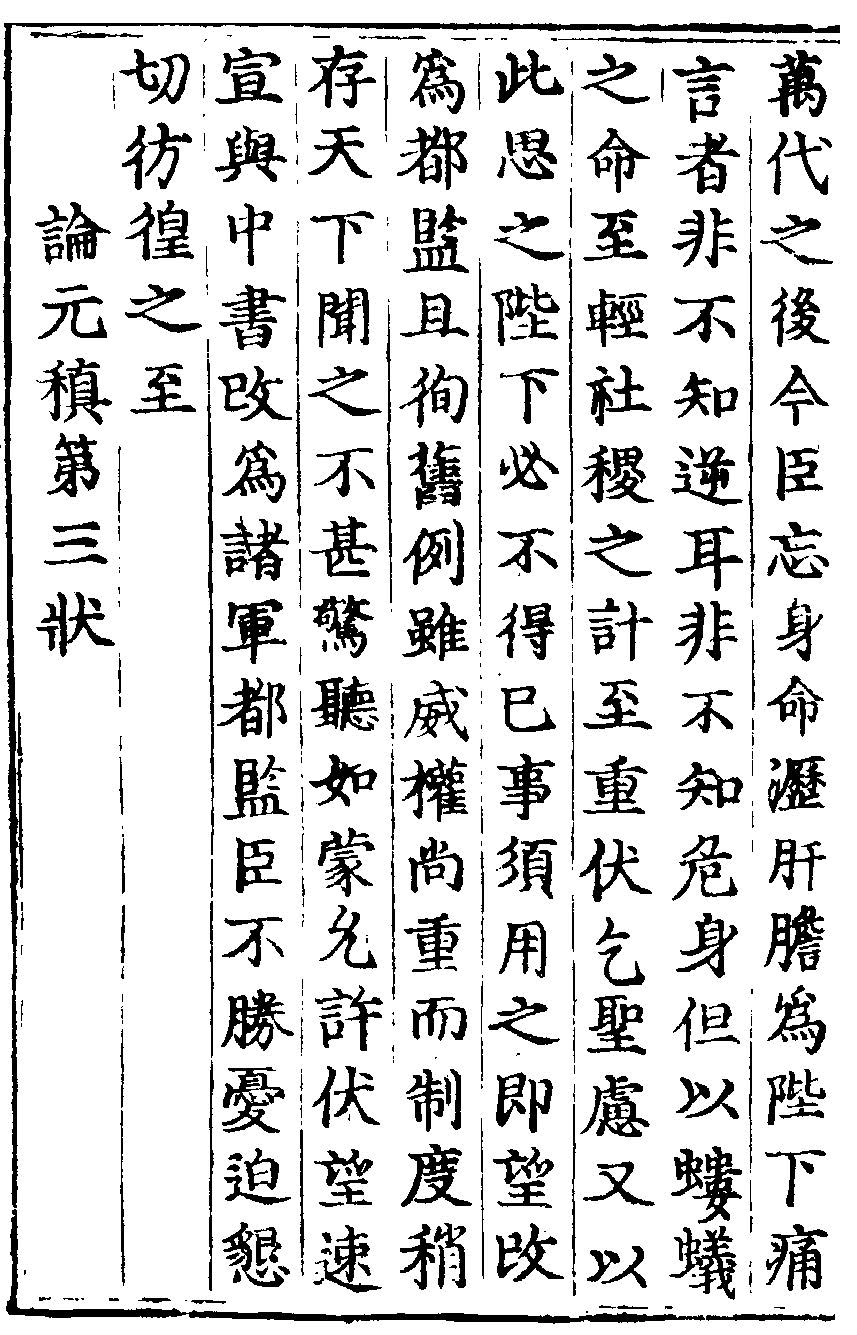 萬代之後今臣忘身命瀝肝膽爲陛下痛
言者非不知逆耳非不知危身但以螻蟻
之命至輕社稷之計至重伏乞聖慮又以
此思之陛下必不得已事須用之即望改
爲都監且徇舊例雖威權尚重而制度稍
存天下聞之不甚驚聽如蒙允許伏望速
宣與中書改爲諸軍都監臣不勝憂迫懇
切彷徨之至
論元稹第三狀